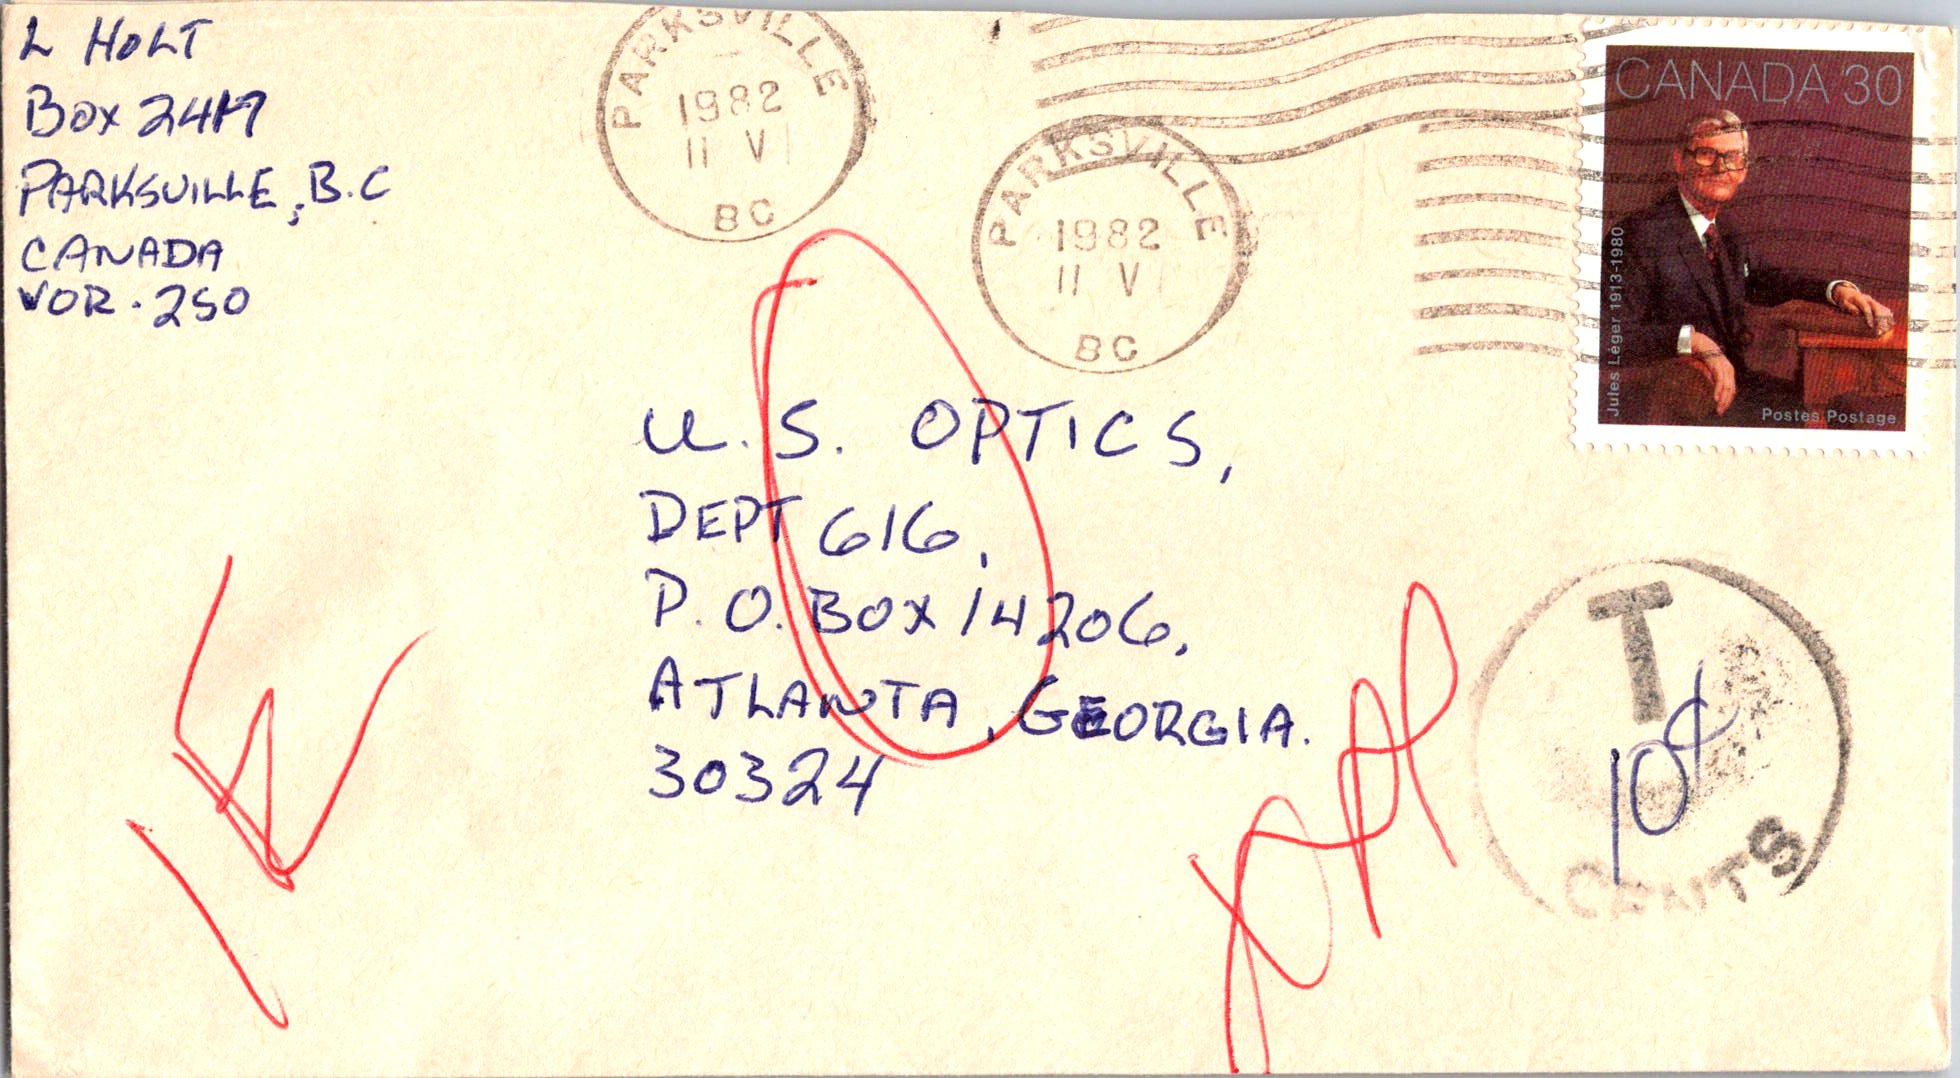 L HOLT
Box 2417
PARKSVILLE, B.C
CANADA
VOR-2S0
PARKSVILLE
1982
11 V
BC
PARKSVILLE
1982
11 V
BC
CANADA 30
Jules Léger 1913-1980
Postes Postage
U.S. OPTICS,
DEPT 616,
P.O. BOX 14206,
ATLANTA, GEORGIA.
30324
T
10¢
CENTS